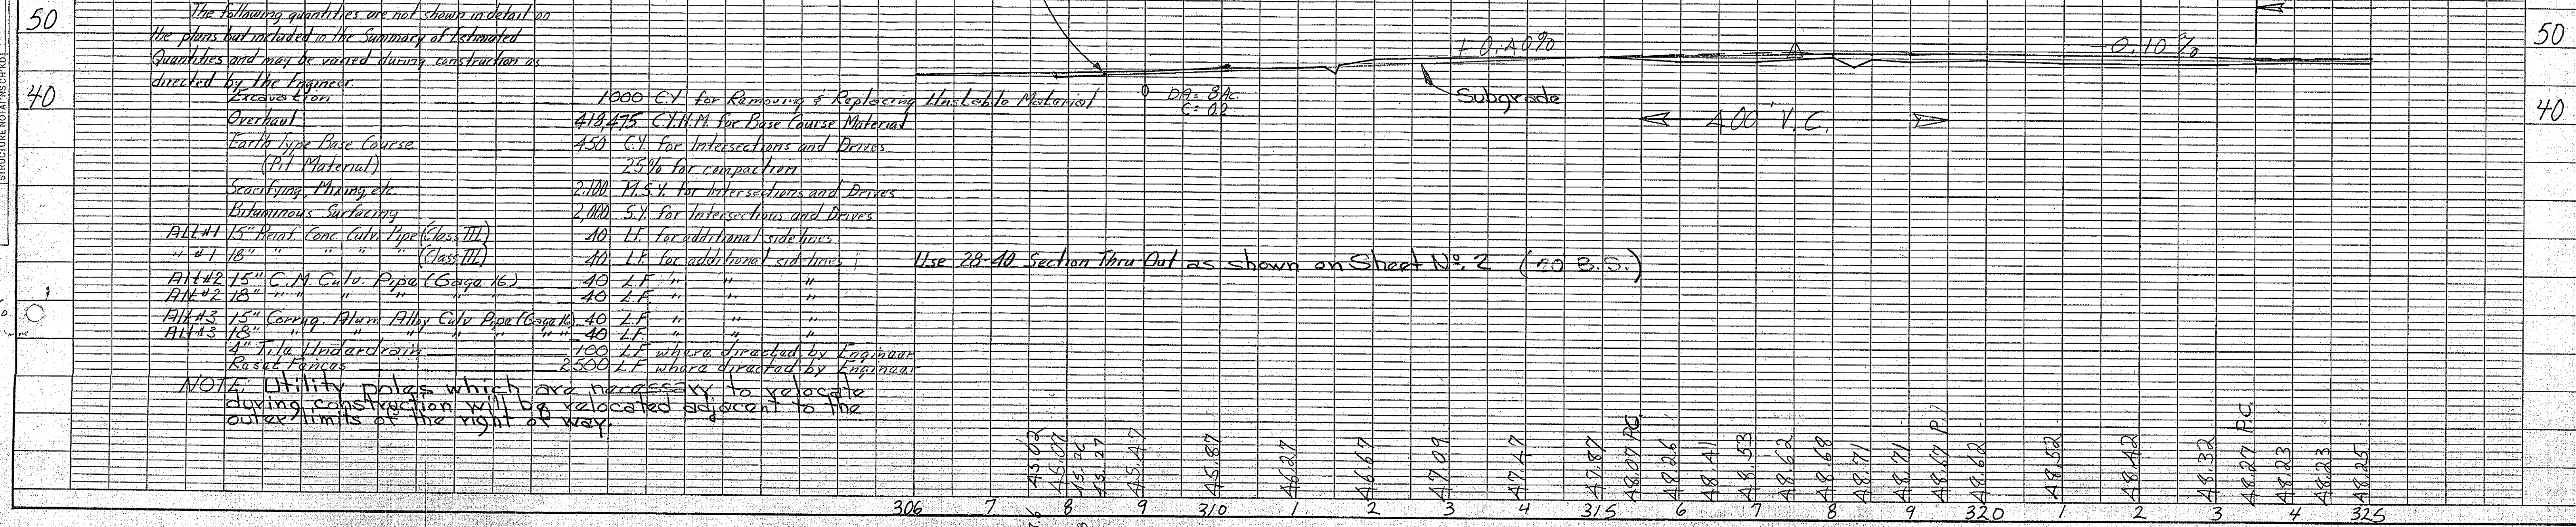 The following quantities are not shown in detail on
the plans but included in the Summary of Estimated
Quantities and may be varied during construction as
directed by the Engineer.
Excavation 1000 C.Y. for Removing & Replacing Unstable Material
Overhaul C.Y.H.M. for Base Course Material
Earth Type Base Course 450 C.Y. for Intersections and Drives
(Pit Material) 25% for compaction
Scarifying, Mixing, etc. 2,100 M.S.Y. for Intersections and Drives
Bituminous Surfacing 2,000 S.Y. for Intersections and Drives
Alt #1 15" Reinf. Conc. Culv. Pipe (Class III) 40 L.F. for additional sidelines
" #1 18" " " " " (Class III) 40 L.F. for additional sidelines
Alt #2 15" C.M. Culv. Pipe (Gage 16) 40 L.F. " "
Alt #2 18" " " " " " 40 L.F. " "
Alt #3 15" Corrug. Alum Alloy Culv Pipe (Gage 16) 40 L.F. " "
Alt #3 18" " " " " " " 40 L.F. " "
4" Tile Underdrain 100 L.F. where directed by Engineer
Reset Fences 2500 L.F. where directed by Engineer
NOTE: Utility poles which are necessary to relocate
during construction will be relocated adjacent to the
outer limits of the right of way.
50
40
50
40
+ 0.40%
0.10%
DA= 8 Ac.
C= 0.2
Subgrade
400' V.C.
Use 28-40 Section Thru-Out as shown on Sheet No. 2 (no B.S.)
45.02
45.07
45.26
45.27
45.47
45.87
46.27
46.67
47.09
47.47
47.87
48.07 P.C.
48.26
48.41
48.53
48.62
48.68
48.71
48.71
48.67 P.
48.62
48.52
48.42
48.32
48.27 P.C.
48.23
48.23
48.25
306 7 8 9 310 1 2 3 4 315 6 7 8 9 320 1 2 3 4 325